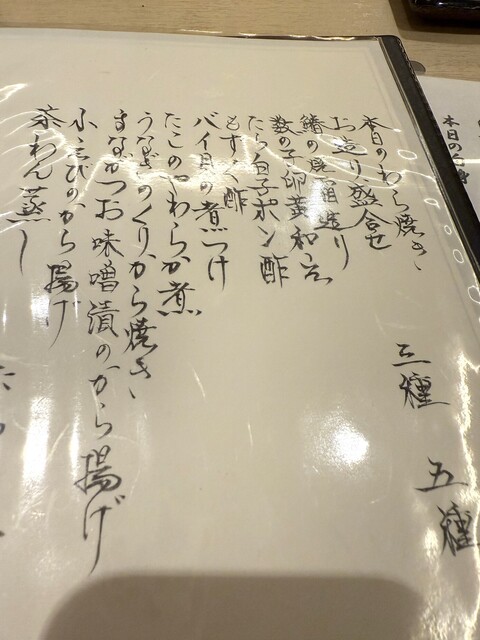 本日の
本日のわら焼き
お造り盛合せ 三種 五種
鰆の 造り
数の子卵黄和え
たら白子ポン酢
もずく酢
バイ貝の煮つけ
たこのやわらか煮
うなぎのくりから焼き
まながつお味噌漬のから揚げ
小えびのから揚げ
茶わん蒸し